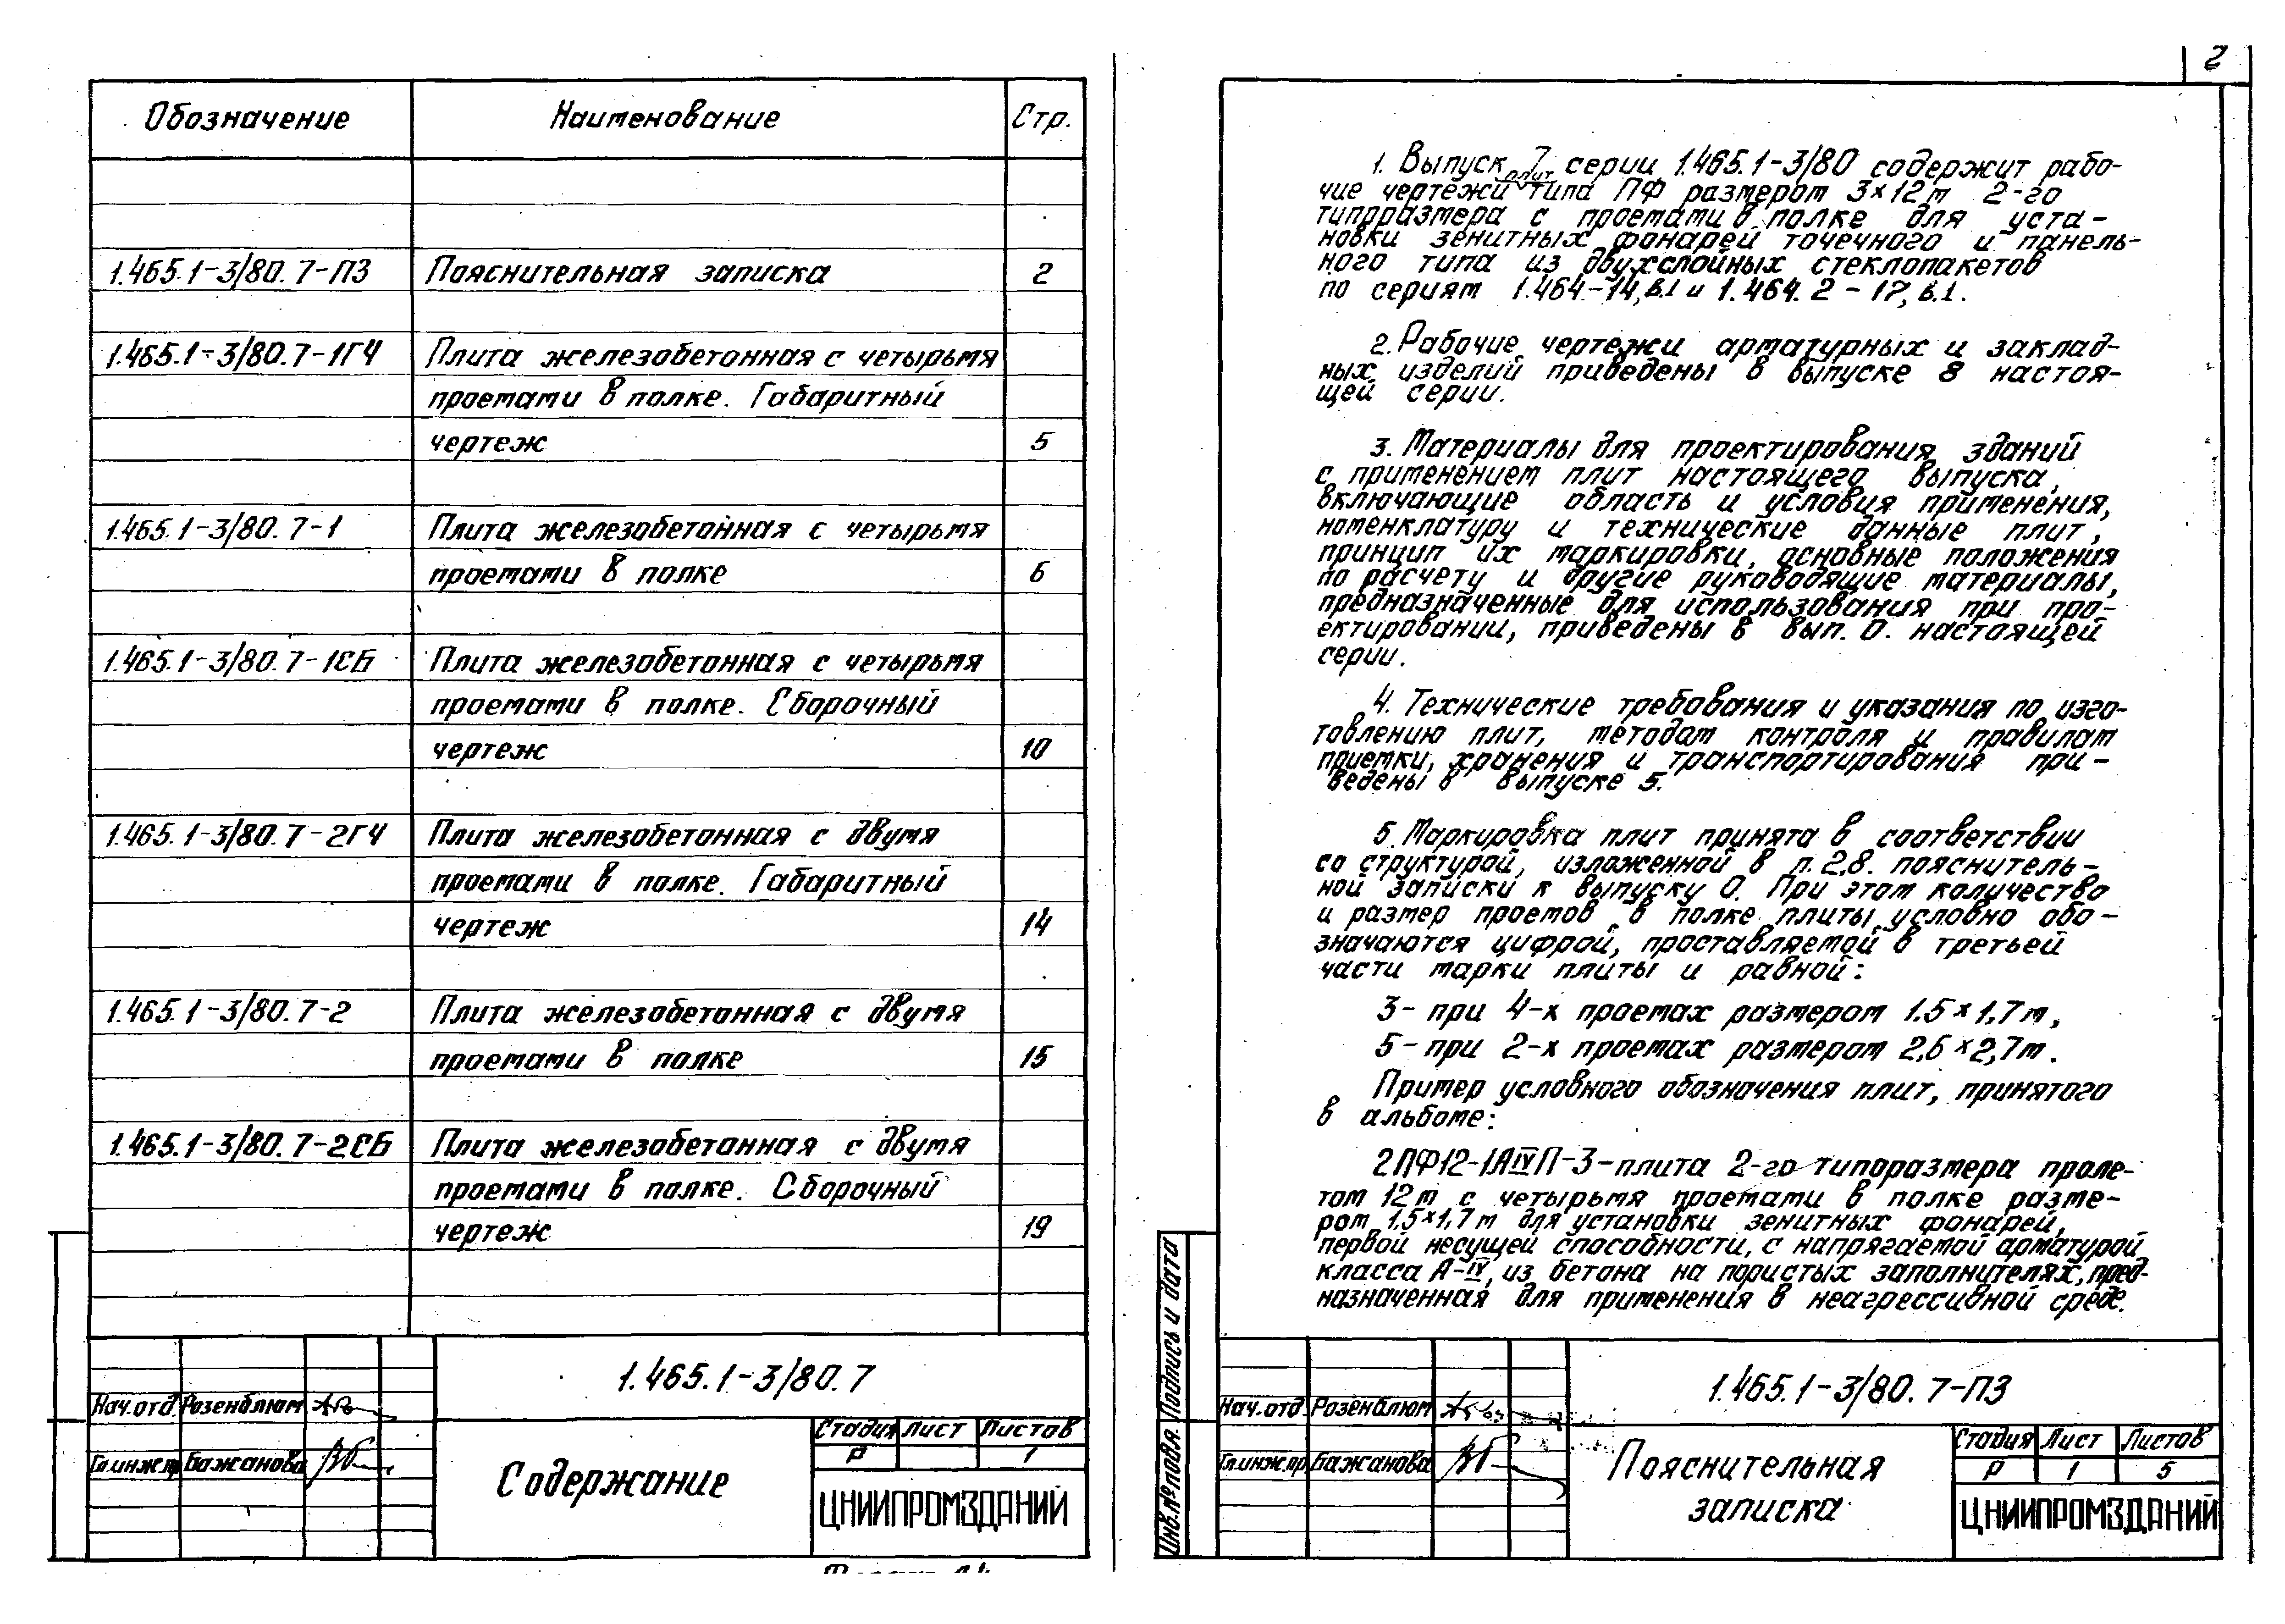 Обозначение Наименование Стр.
1.465.1-3/80.7-ПЗ Пояснительная записка 2
1.465.1-3/80.7-1ГЧ Плита железобетонная с четырьмя
проемами в полке. Габаритный
чертеж 5
1.465.1-3/80.7-1 Плита железобетонная с четырьмя
проемами в полке 6
1.465.1-3/80.7-1СБ Плита железобетонная с четырьмя
проемами в полке. Сборочный
чертеж 10
1.465.1-3/80.7-2ГЧ Плита железобетонная с двумя
проемами в полке. Габаритный
чертеж 14
1.465.1-3/80.7-2 Плита железобетонная с двумя
проемами в полке 15
1.465.1-3/80.7-2СБ Плита железобетонная с двумя
проемами в полке. Сборочный
чертеж 19
1.465.1-3/80.7
Нач.отд. Розенблюм
Гл.инж.пр. Бажанова
Содержание
Стадия Лист Листов
Р 1
ЦНИИПРОМЗДАНИЙ
2
1. Выпуск 7 серии 1.465.1-3/80 содержит рабо-
чие чертежи плит типа ПФ размером 3×12м 2-го
типоразмера с проемами в полке для уста-
новки зенитных фонарей точечного и панель-
ного типа из двухслойных стеклопакетов
по сериям 1.464-14, в.1 и 1.464.2-17, в.1.
2. Рабочие чертежи арматурных и заклад-
ных изделий приведены в выпуске 8 настоя-
щей серии.
3. Материалы для проектирования зданий
с применением плит настоящего выпуска,
включающие область и условия применения,
номенклатуру и технические данные плит,
принцип их маркировки, основные положения
по расчету и другие руководящие материалы,
предназначенные для использования при про-
ектировании, приведены в вып. 0. настоящей
серии.
4. Технические требования и указания по изго-
товлению плит, методам контроля и правилам
приемки, хранения и транспортирования при-
ведены в выпуске 5.
5. Маркировка плит принята в соответствии
со структурой, изложенной в п. 2.8. пояснитель-
ной записки к выпуску 0. При этом количество
и размер проемов в полке плиты условно обо-
значаются цифрой, проставляемой в третьей
части марки плиты и равной:
3- при 4-х проемах размером 1.5×1,7м,
5- при 2-х проемах размером 2,6×2,7м.
Пример условного обозначения плит, принятого
в альбоме:
2ПФ12-1АIVП-3-плита 2-го типоразмера проле-
том 12м с четырьмя проемами в полке разме-
ром 1,5×1,7м для установки зенитных фонарей,
первой несущей способности, с напрягаемой арматурой
класса А-IV, из бетона на пористых заполнителях, пред-
назначенная для применения в неагрессивной среде.
Подпись и дата
Инв.№ подл.
1.465.1-3/80.7-ПЗ
Нач.отд. Розенблюм
Гл.инж.пр. Бажанова
Пояснительная
записка
Стадия Лист Листов
Р 1 5
ЦНИИПРОМЗДАНИЙ